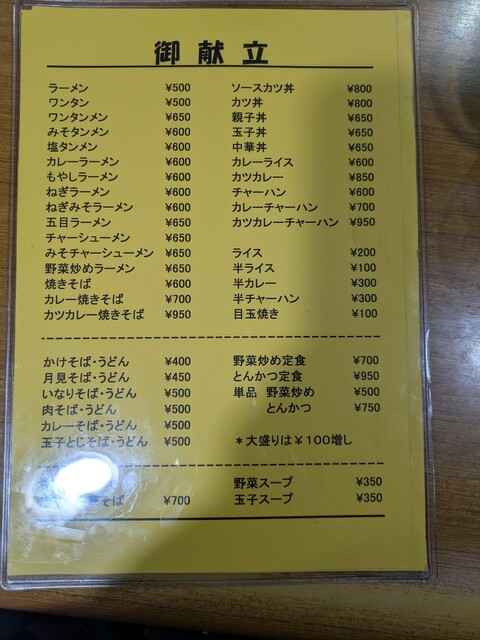 御献立
ラーメン ¥500
ワンタン ¥500
ワンタンメン ¥650
みそタンメン ¥600
塩タンメン ¥600
カレーラーメン ¥600
もやしラーメン ¥600
ねぎラーメン ¥600
ねぎみそラーメン ¥600
五目ラーメン ¥650
チャーシューメン ¥650
みそチャーシューメン ¥650
野菜炒めラーメン ¥650
焼きそば ¥600
カレー焼きそば ¥700
カツカレー焼きそば ¥950
ソースカツ丼 ¥800
カツ丼 ¥800
親子丼 ¥650
玉子丼 ¥650
中華丼 ¥650
カレーライス ¥600
カツカレー ¥850
チャーハン ¥600
カレーチャーハン ¥700
カツカレーチャーハン ¥950
ライス ¥200
半ライス ¥100
半カレー ¥300
半チャーハン ¥300
目玉焼き ¥100
かけそば・うどん ¥400
月見そば・うどん ¥450
いなりそば・うどん ¥500
肉そば・うどん ¥500
カレーそば・うどん ¥500
玉子とじそば・うどん ¥500
野菜炒め定食 ¥700
とんかつ定食 ¥950
単品 野菜炒め ¥500
とんかつ ¥750
*大盛りは¥100増し
そば ¥700
野菜スープ ¥350
玉子スープ ¥350